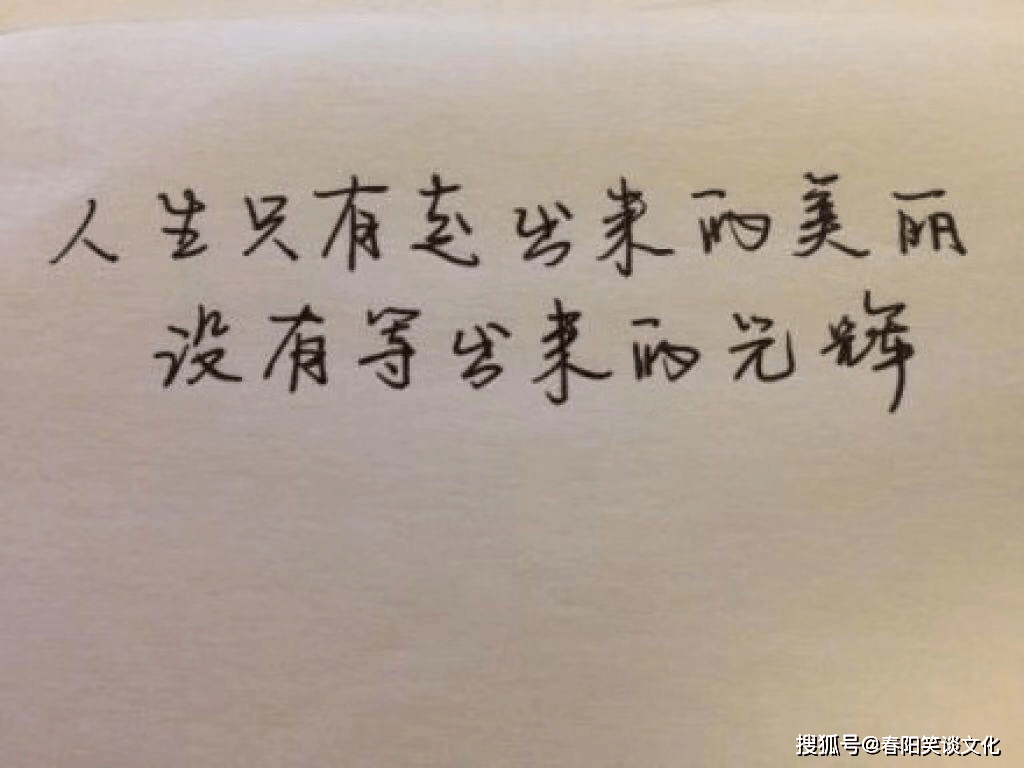 人生只有走出来的美丽
没有等出来的光辉
搜狐号@春阳笑谈文化